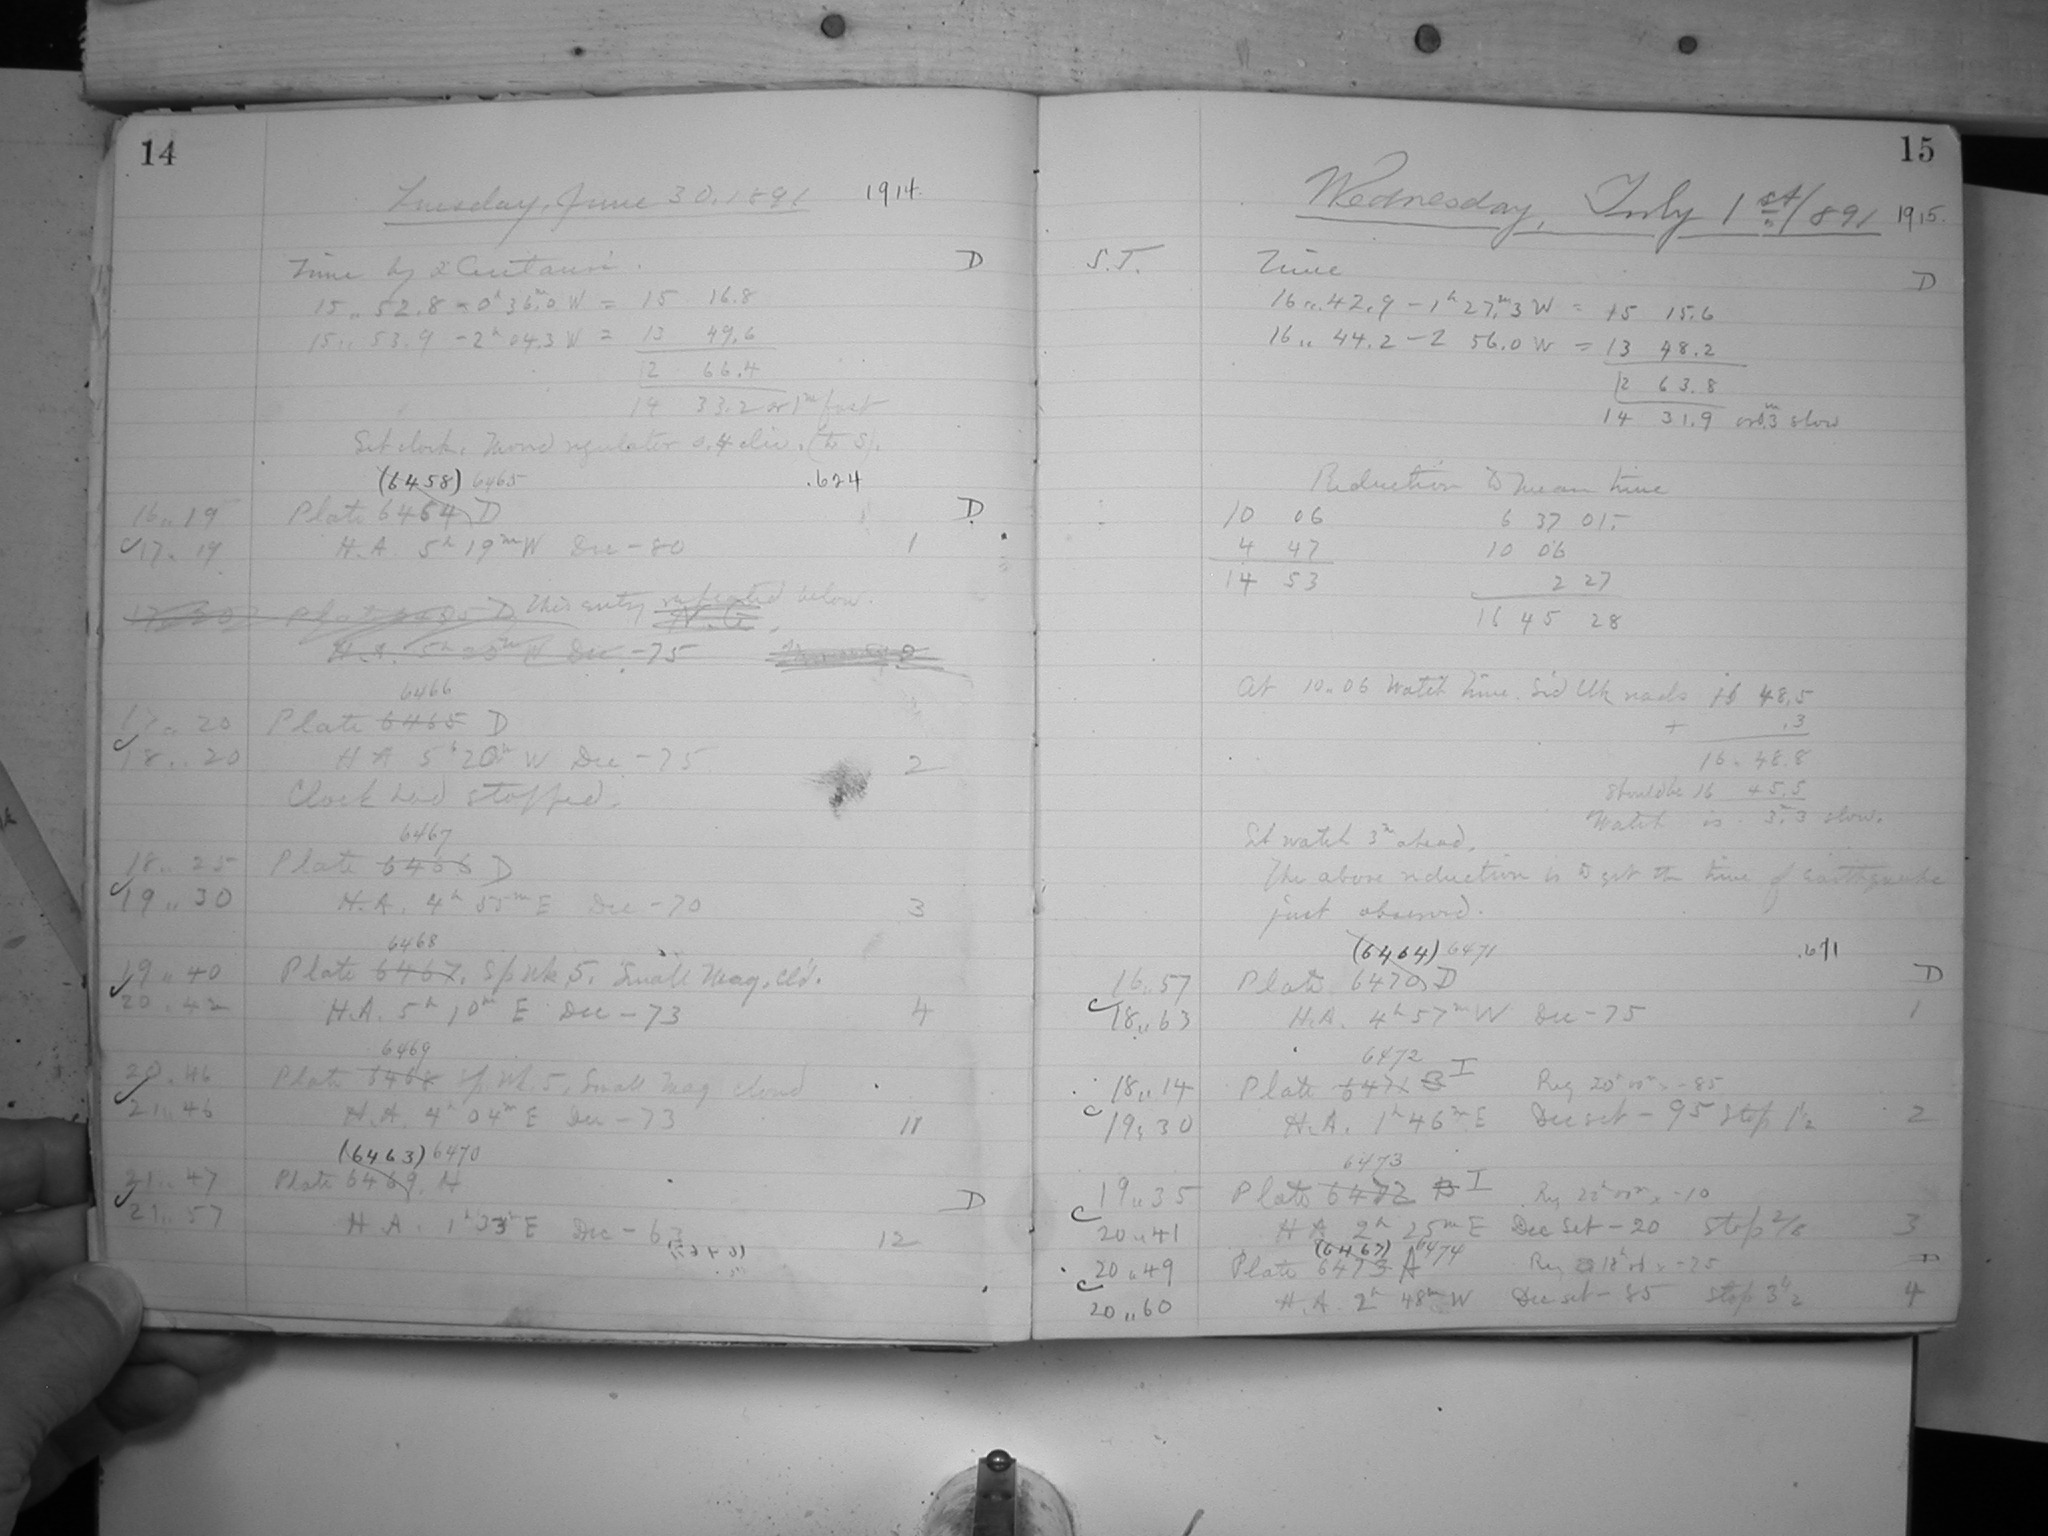 14
Tuesday, June 30, 1891 1914.
Time by α Centauri. D
15,, 52.8 - 0h 36m.0 W = 15 16.8
15,, 53.9 - 2h 04.3 W = 13 49.6
2 66.4
14 33.2 or 1m fast
Set clock. Moved regulator 0.4 div. (to S).
(6458) 6465 .624
16,, 19 Plate 6464 D D
17,, 19 H.A. 5h 19m W Dec -80 1
This entry repeated below.
H.A. 5h 20m W Dec -75
6466
17,, 20 Plate 6465 D
18,, 20 H A 5h 20m W Dec -75 2
Clock had stopped.
6467
18,, 25 Plate 6466 D
19,, 30 H.A. 4h 55m E Dec -70 3
6468
19,, 40 Plate 6467. Sp Wk. 5. Small Mag. Cl'd.
20,, 42 H.A. 5h 10m E Dec -73 4
6469
20,, 46 Plate 6468 Sp. Wk. 5. Small Mag cloud
21,, 46 H.A. 4h 04m E Dec -73 11
(6463) 6470
21,, 47 Plate 6469. A D
21,, 57 H.A. 1h 33m E Dec -63 12
15
Wednesday, July 1st/891 1915.
S.T. Time D
16,, 42.9 - 1h 27m.3 W = 15 15.6
16,, 44.2 - 2 56.0 W = 13 48.2
2 63.8
14 31.9 or 0m.3 slow
Reduction to mean time
10 06 6 37 01
4 47 10 06
14 53 2 27
16 45 28
At 10,, 06 Watch time. Sid Clk reads 16 48.5
+ .3
16,, 48.8
should be 16 45.5
Watch is 3m.3 slow.
Set watch 3m ahead.
The above reduction is to get the time of earthquake
just observed.
(6464) 6471 .671
16,, 57 Plate 6470 D D
18,, 03 H.A. 4h 57m W Dec -75 1
6472
18,, 14 Plate 6471 B I Reg 20h 00m x -85
19,, 30 H.A. 1h 46m E Dec set -95 Stop 1½ 2
6473
19,, 35 Plate 6472 B I Reg 23h 00m x -10
20,, 41 H A 2h 25m E Dec set -20 Stop 2/8 3
(6467) 6474
20,, 49 Plate 6473 A Reg 18h 00 x -75 D
20,, 60 H.A. 2h 48m W Dec set -85 Stop 3½ 4